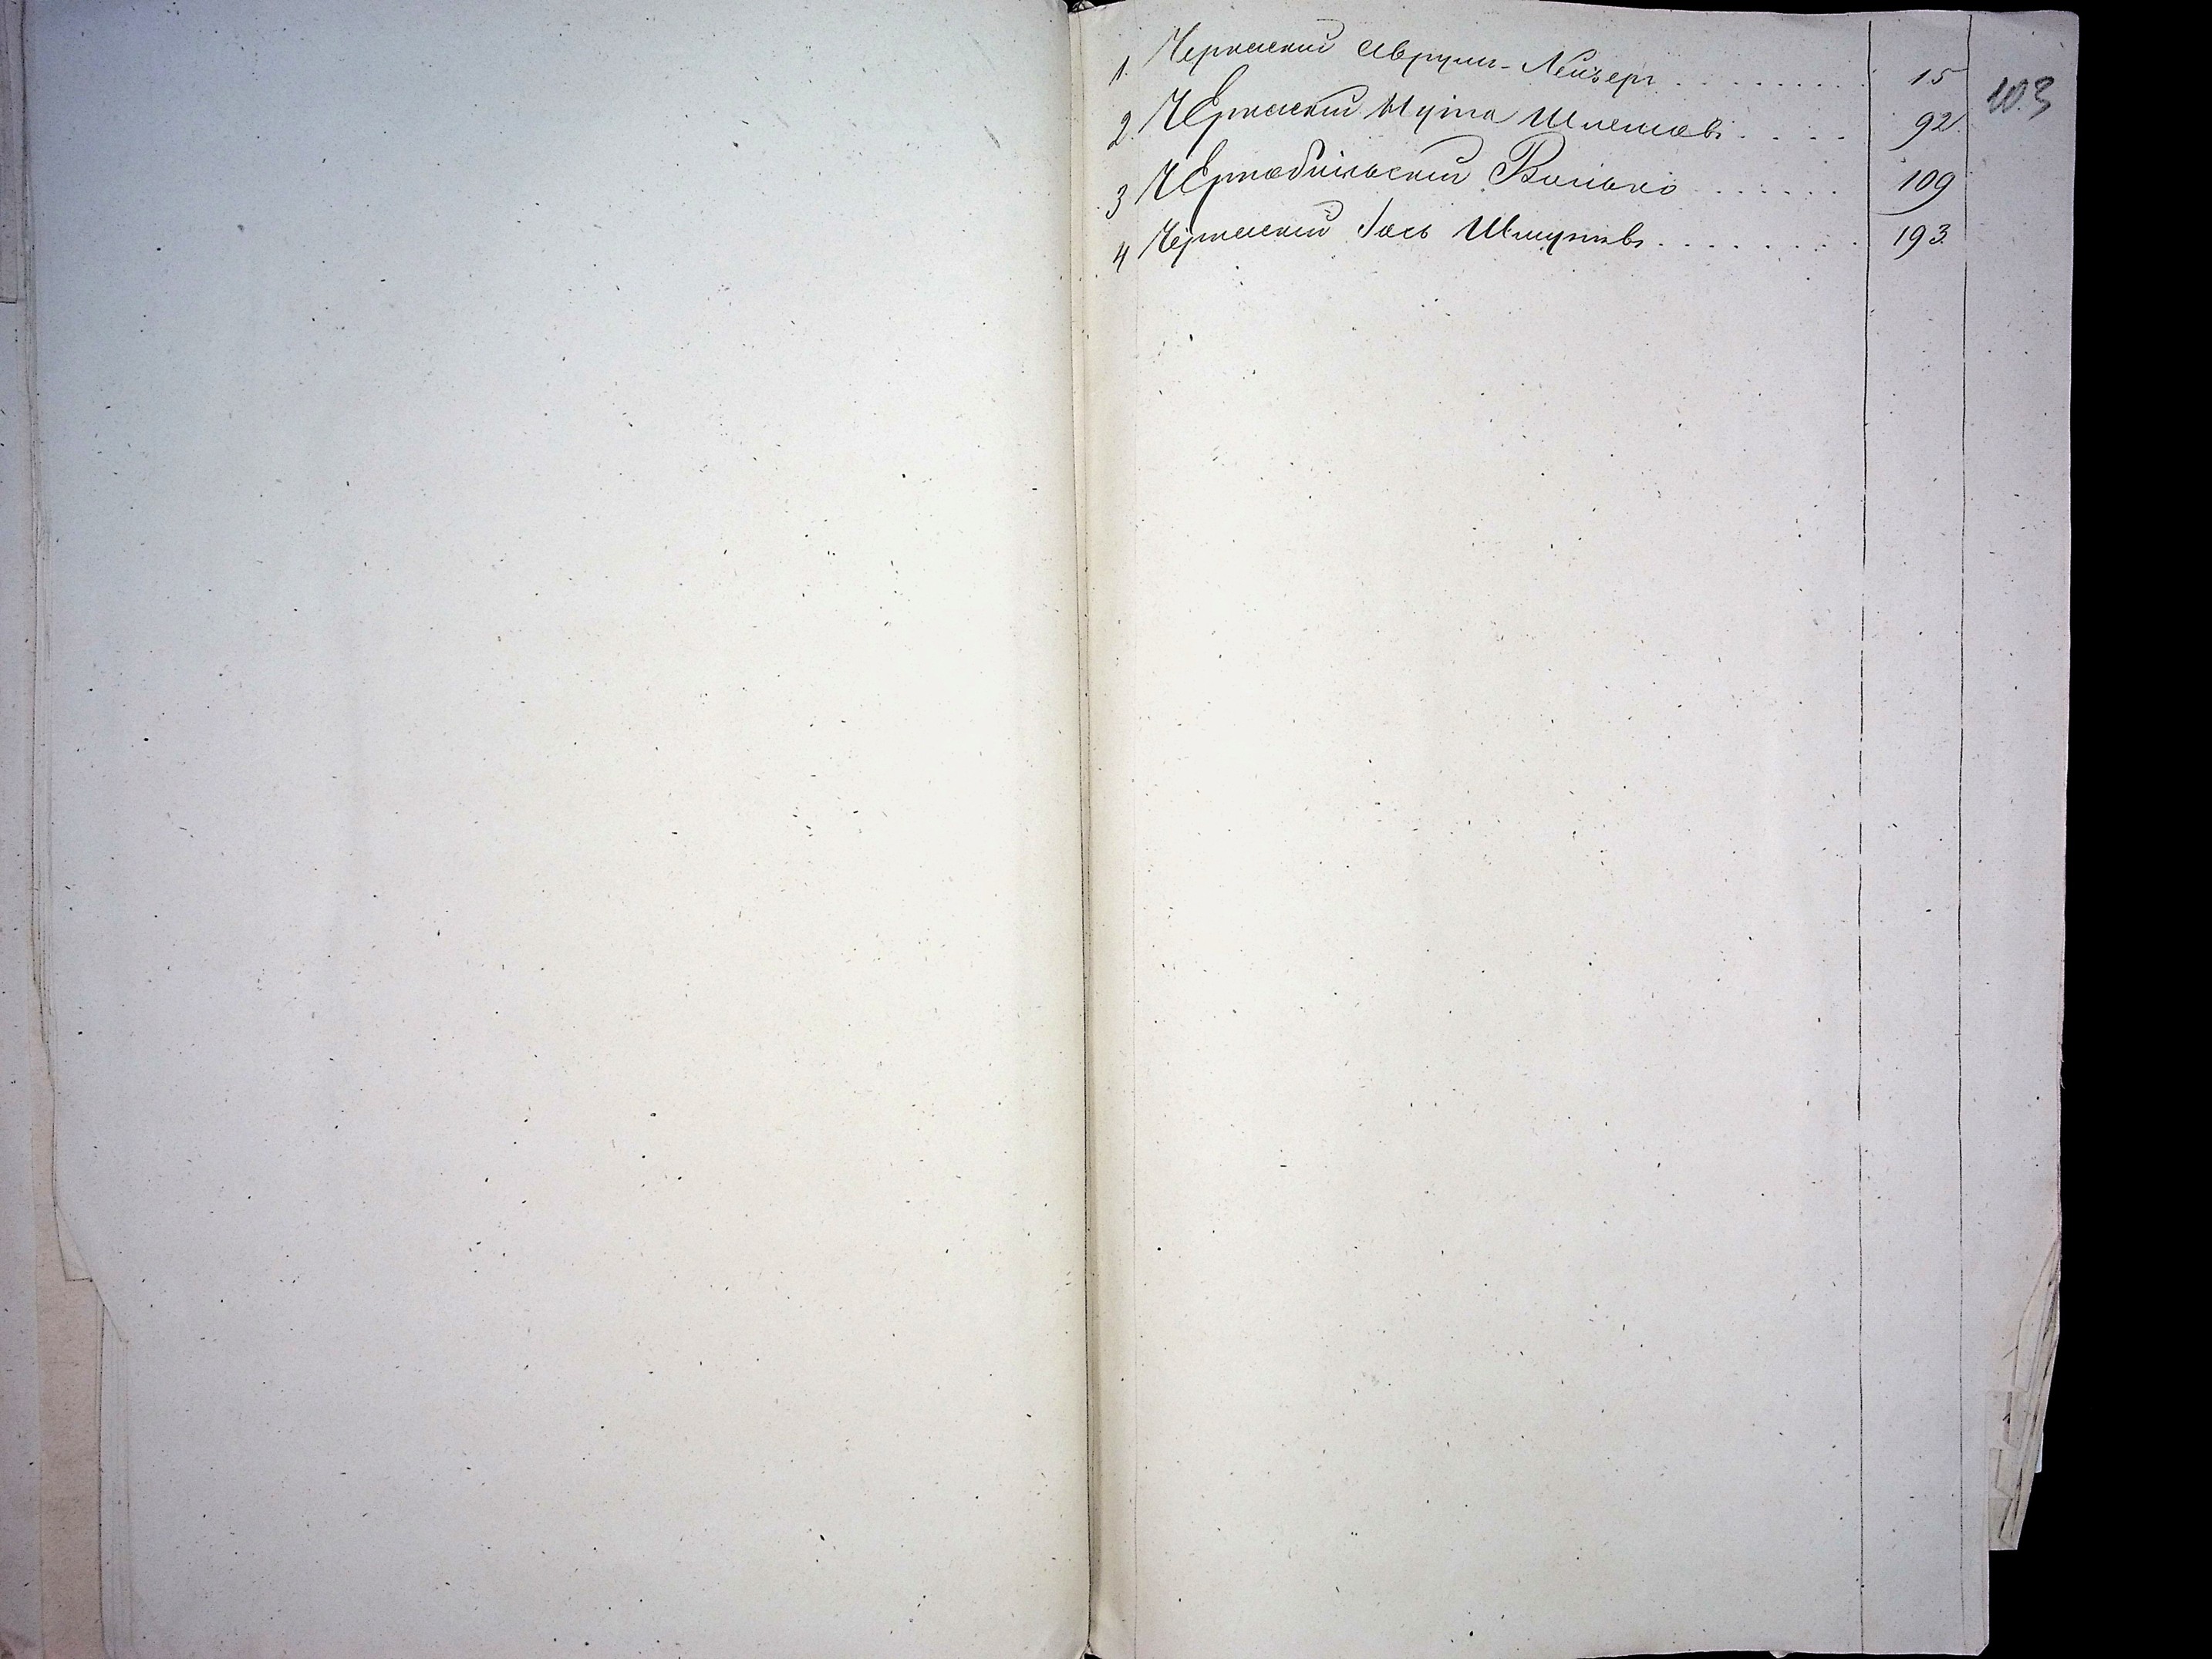 1. Черкаский Аврумъ-Лейзеръ . . . . . . . . . . 15
103
2. Черкаский Мута Шлемовъ . . . . 92
3 Чернобильский Волько . . . . . . 109
4 Черкаский Іось Шмулевъ . . . . . . . . 193